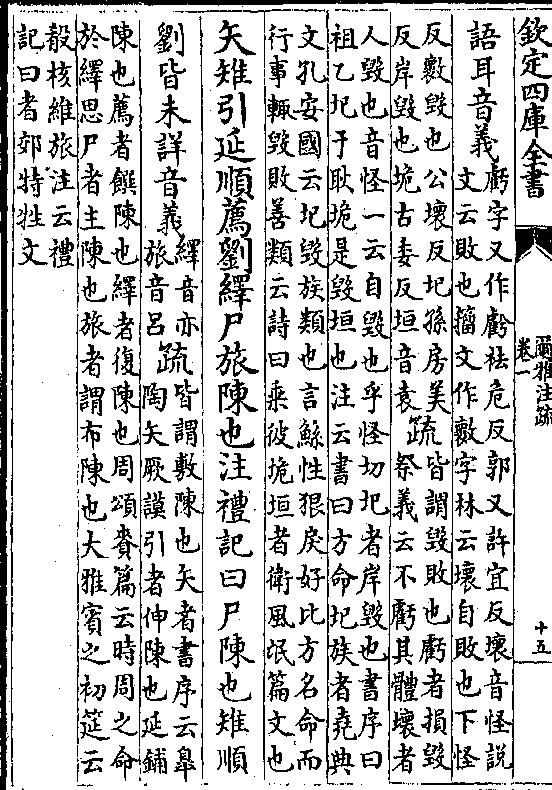 欽定四庫全書
爾雅注疏
卷一
十五
語耳音義
虧字又作虧祛危反郭又許宜反壞音怪説
文云敗也籒文作𣀩字林云壞自敗也下怪
反𣀩毀也公壞反圯孫房美
反岸毀也垝古委反垣音袁
疏
皆謂毀敗也虧者損毀
祭義云不虧其體壞者
人毀也音怪一云自毀也乎怪切圯者岸毀也書序曰
祖乙圯于耿垝是毀垣也注云書曰方命圯族者堯典
文孔安國云圯毀族類也言鯀性狠戾好比方名命而
行事輒毀敗善類云詩曰乗彼垝垣者衛風氓篇文也
矢雉引延順薦劉繹尸旅陳也注禮記曰尸陳也雉順
劉皆未詳音義
繹音亦
旅音呂
疏
皆謂敷陳也矢者書序云臯
陶矢厥謨引者伸陳也延鋪
陳也薦者饌陳也繹者復陳也周頌賚篇云時周之命
於繹思尸者主陳也旅者謂布陳也大雅賓之初筵云
殽核維旅注云禮
記曰者郊特牲文